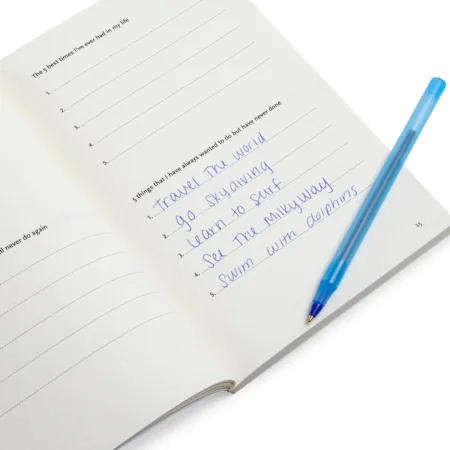 The 5 best times I've ever had in my life
1.
2.
3.
4.
5.
5 things that I have always wanted to do but have never done
1. Travel The world
2. go skydiving
3. Learn to surf
4. See The Milky Way
5. Swim with dolphins
ll never do again
15